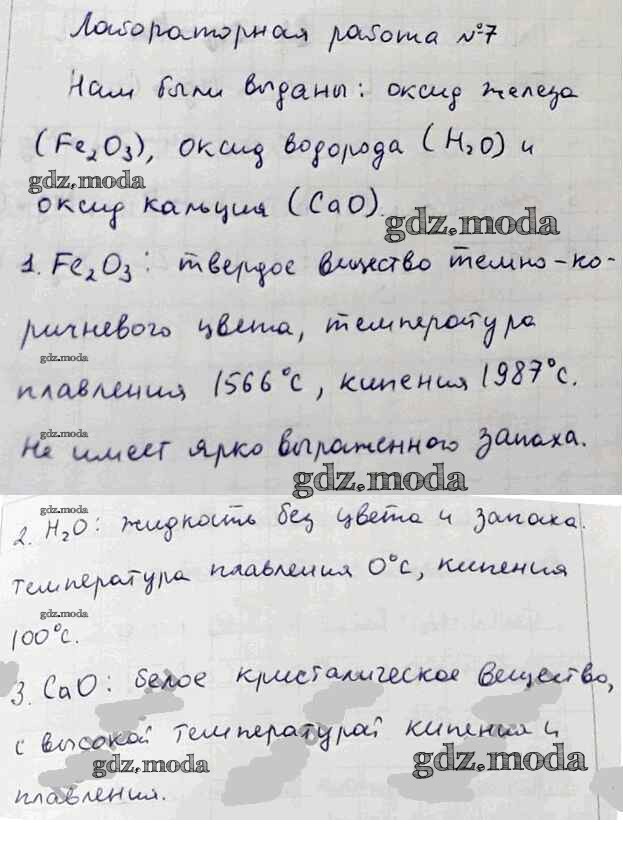 Лабораторная работа №7
Нам были выданы: оксид железа
(Fe₂O₃), оксид водорода (H₂O) и
gdz.moda
оксид кальция (CaO).
gdz.moda
1. Fe₂O₃: твердое вещество темно-ко-
ричневого цвета, температура
gdz.moda
плавления 1566°С, кипения 1987°С.
gdz.moda
Не имеет ярко выраженного запаха.
gdz.moda
gdz.moda
2. H₂O: жидкость без цвета и запаха.
температура плавления 0°С, кипения
gdz.moda
100°С.
3. CaO: белое кристалическое вещество,
с высокой температурай кипения и
gdz.moda
gdz.moda
плавления.